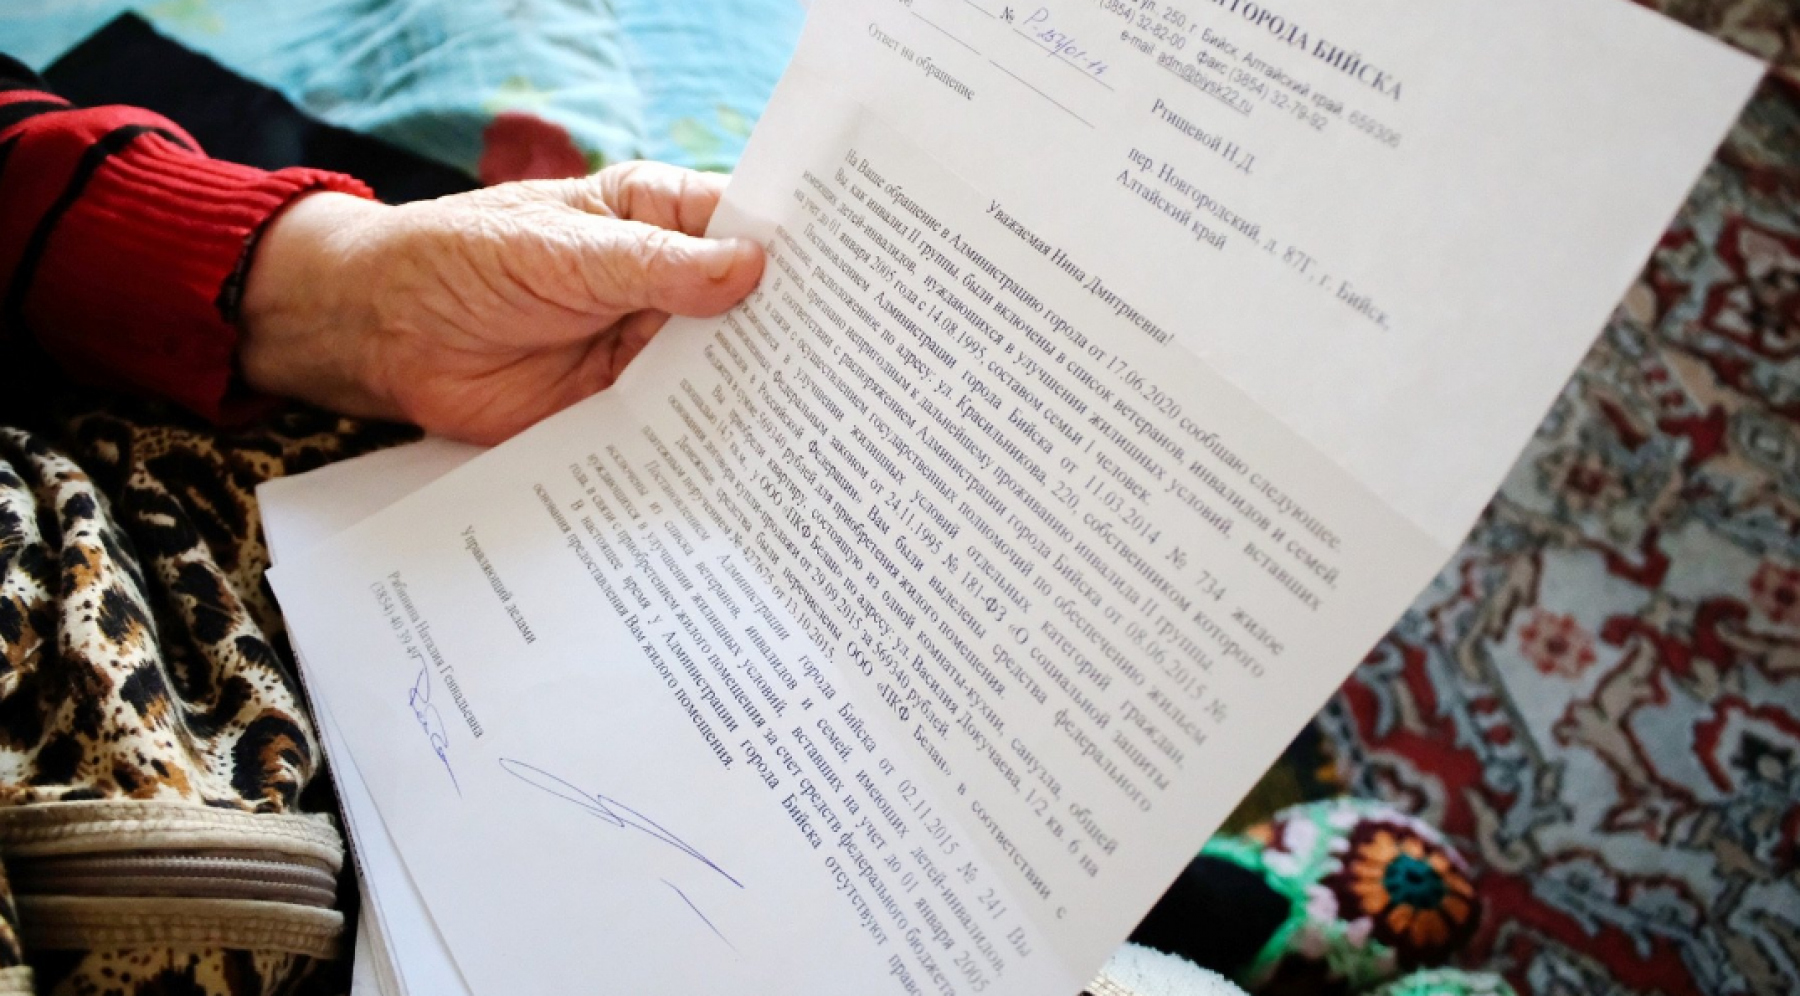 ГОРОДА БИЙСКА
ул. 250, г. Бийск, Алтайский край, 659306
(3854) 32-82-00 Факс (3854) 32-79-92
e-mail: adm@biysk22.ru
№ Р-254/01-14
Ответ на обращение
Ртищевой Н.Д
пер. Новгородский, д. 87Г, г. Бийск,
Алтайский край
Уважаемая Нина Дмитриевна!
На Ваше обращение в Администрацию города от 17.06.2020 сообщаю следующее.
Вы, как инвалид II группы, были включены в список ветеранов, инвалидов и семей,
имеющих детей-инвалидов, нуждающихся в улучшении жилищных условий, вставших
на учет до 01 января 2005 года с 14.08.1995, составом семьи 1 человек.
Постановлением Администрации города Бийска от 11.03.2014 № 734 жилое
помещение, расположенное по адресу: ул. Красильникова, 220, собственником которого
Вы являлись, признано непригодным к дальнейшему проживанию инвалида II группы.
В соответствии с распоряжением Администрации города Бийска от 08.06.2015 №
в связи с осуществлением государственных полномочий по обеспечению жильем
нуждающихся в улучшении жилищных условий отдельных категорий граждан,
установленных Федеральным законом от 24.11.1995 № 181-ФЗ «О социальной защиты
инвалидов в Российской Федерации» Вам были выделены средства федерального
бюджета в сумме 569340 рублей для приобретения жилого помещения.
Вы приобрели квартиру, состоящую из одной комнаты-кухни, санузла, общей
площадью 14,7 кв.м., у ООО «ПКФ Белан» по адресу: ул. Василия Докучаева, 1/2 кв. 6 на
основании договора купли-продажи от 29.09.2015 за 569340 рублей.
Денежные средства были перечислены ООО «ПКФ Белан» в соответствии с
платежным поручением № 427675 от 13.10.2015.
Постановлением Администрации города Бийска от 02.11.2015 № 241 Вы
исключены из списка ветеранов, инвалидов и семей, имеющих детей-инвалидов,
нуждающихся в улучшении жилищных условий, вставших на учет до 01 января 2005
года, в связи с приобретением жилого помещения за счет средств федерального бюджета.
В настоящее время у Администрации города Бийска отсутствуют
основания предоставления Вам жилого помещения.
Управляющий делами
Наталия Геннадьевна
(3854) 40 39 49